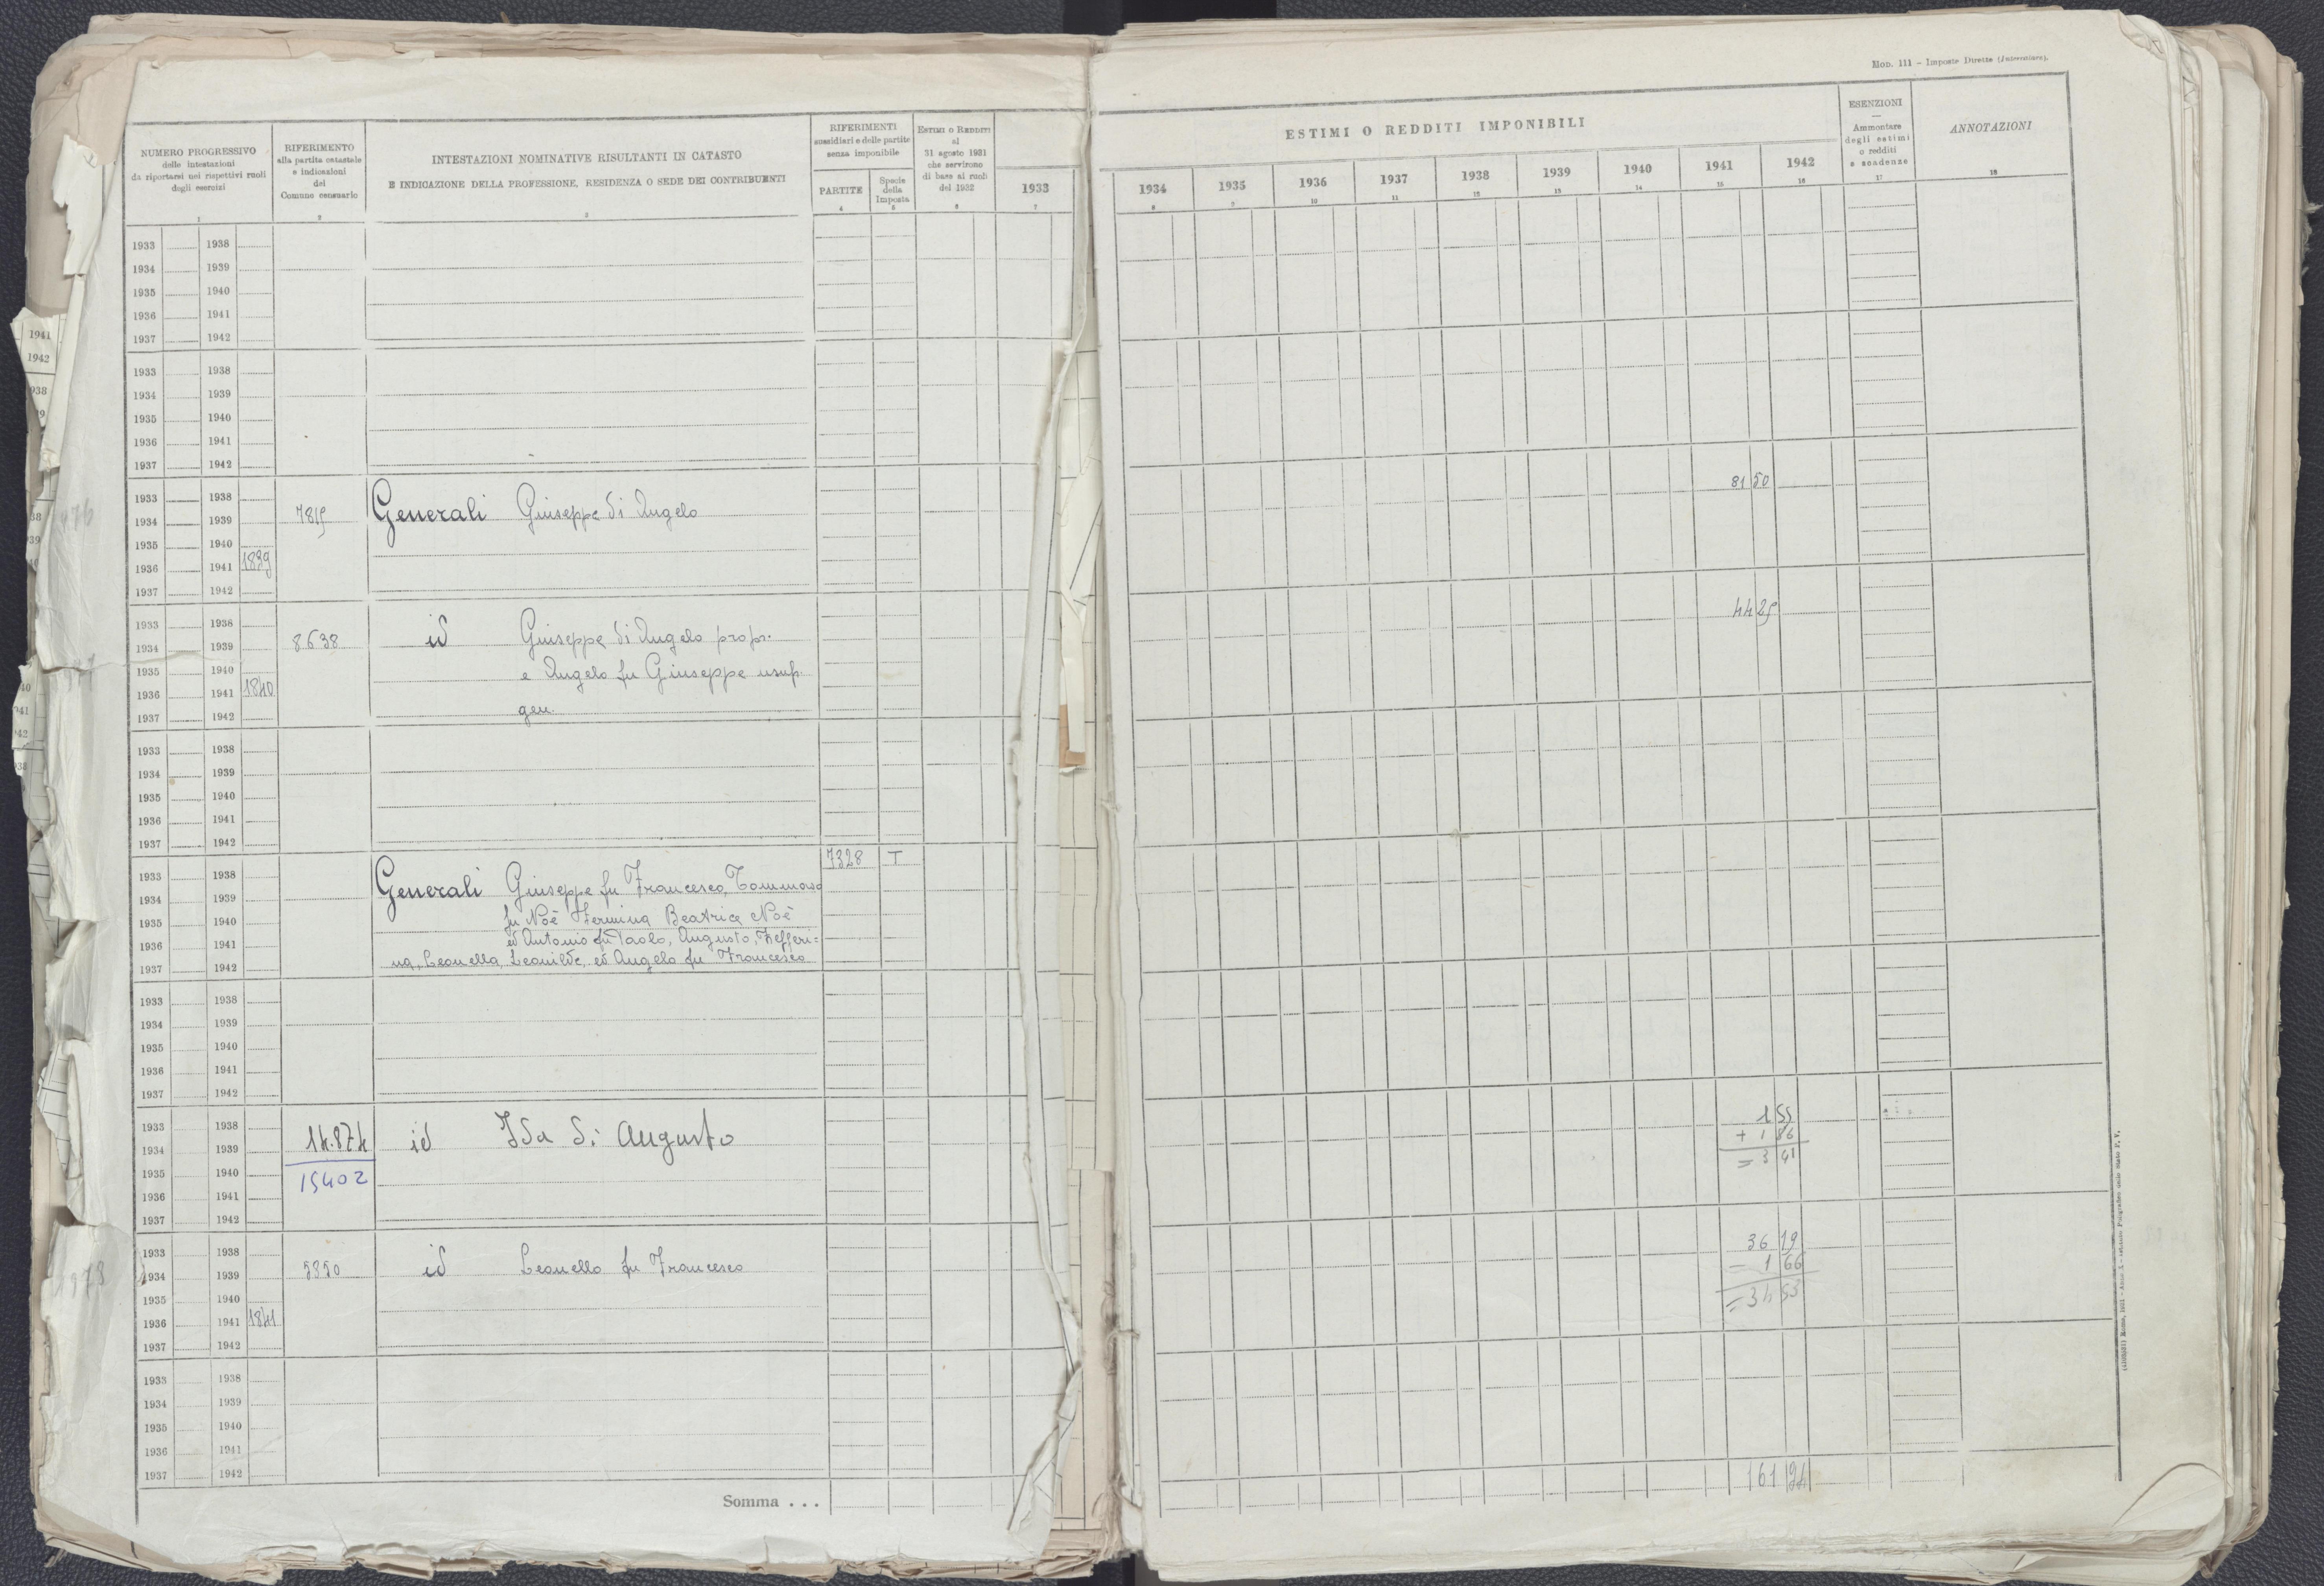 MOD. 111 - Imposte Dirette (Intercalare).
NUMERO PROGRESSIVO
delle intestazioni
da riportarsi nei rispettivi ruoli
degli esercizi
1
RIFERIMENTO
alla partita catastale
e indicazioni
del
Comune censuario
2
INTESTAZIONI NOMINATIVE RISULTANTI IN CATASTO
E INDICAZIONE DELLA PROFESSIONE, RESIDENZA O SEDE DEI CONTRIBUENTI
3
RIFERIMENTI
sussidiari e delle partite
senza imponibile
PARTITE
4
Specie
della
Imposta
5
ESTIMI O REDDITI
al
31 agosto 1931
che servirono
di base ai ruoli
del 1932
6
1933
7
ESTIMI O REDDITI IMPONIBILI
1934 1935 1936 1937 1938 1939 1940 1941 1942
8 9 10 11 12 13 14 15 16
ESENZIONI
Ammontare
degli estimi
o redditi
e scadenze
17
ANNOTAZIONI
18
1933 1938
1934 1939
1935 1940
1936 1941
1937 1942
1933 1938
1934 1939
1935 1940
1936 1941
1937 1942
1933 1938 81 50
1934 1939 7815 Generali Giuseppe di Angelo
1935 1940
1936 1941 1839
1937 1942
1933 1938 44 25
1934 1939 8638 id Giuseppe di Angelo propr.
1935 1940 e Angelo fu Giuseppe usuf.
1936 1941 1840
1937 1942 gen.
1933 1938
1934 1939
1935 1940
1936 1941
1937 1942
7328 T
1933 1938 Generali Giuseppe fu Francesco, Tommaso
1934 1939
1935 1940 fu Noè Fermina Beatrice Noè
1936 1941 ed Antonio fu Paolo, Augusto, Zefferi=
1937 1942 na, Leonella, Leonilde, ed Angelo fu Francesco
1933 1938
1934 1939
1935 1940
1936 1941
1937 1942
1933 1938 1 55
1934 1939 14.874 id Ida di Augusto + 1 86
1935 1940 15402 = 3 41
1936 1941
1937 1942
1933 1938 36 19
1934 1939 5350 id Leonello fu Francesco - 1 66
1935 1940 = 34 53
1936 1941 1841
1937 1942
1933 1938
1934 1939
1935 1940
1936 1941
1937 1942
Somma . . . 161 94